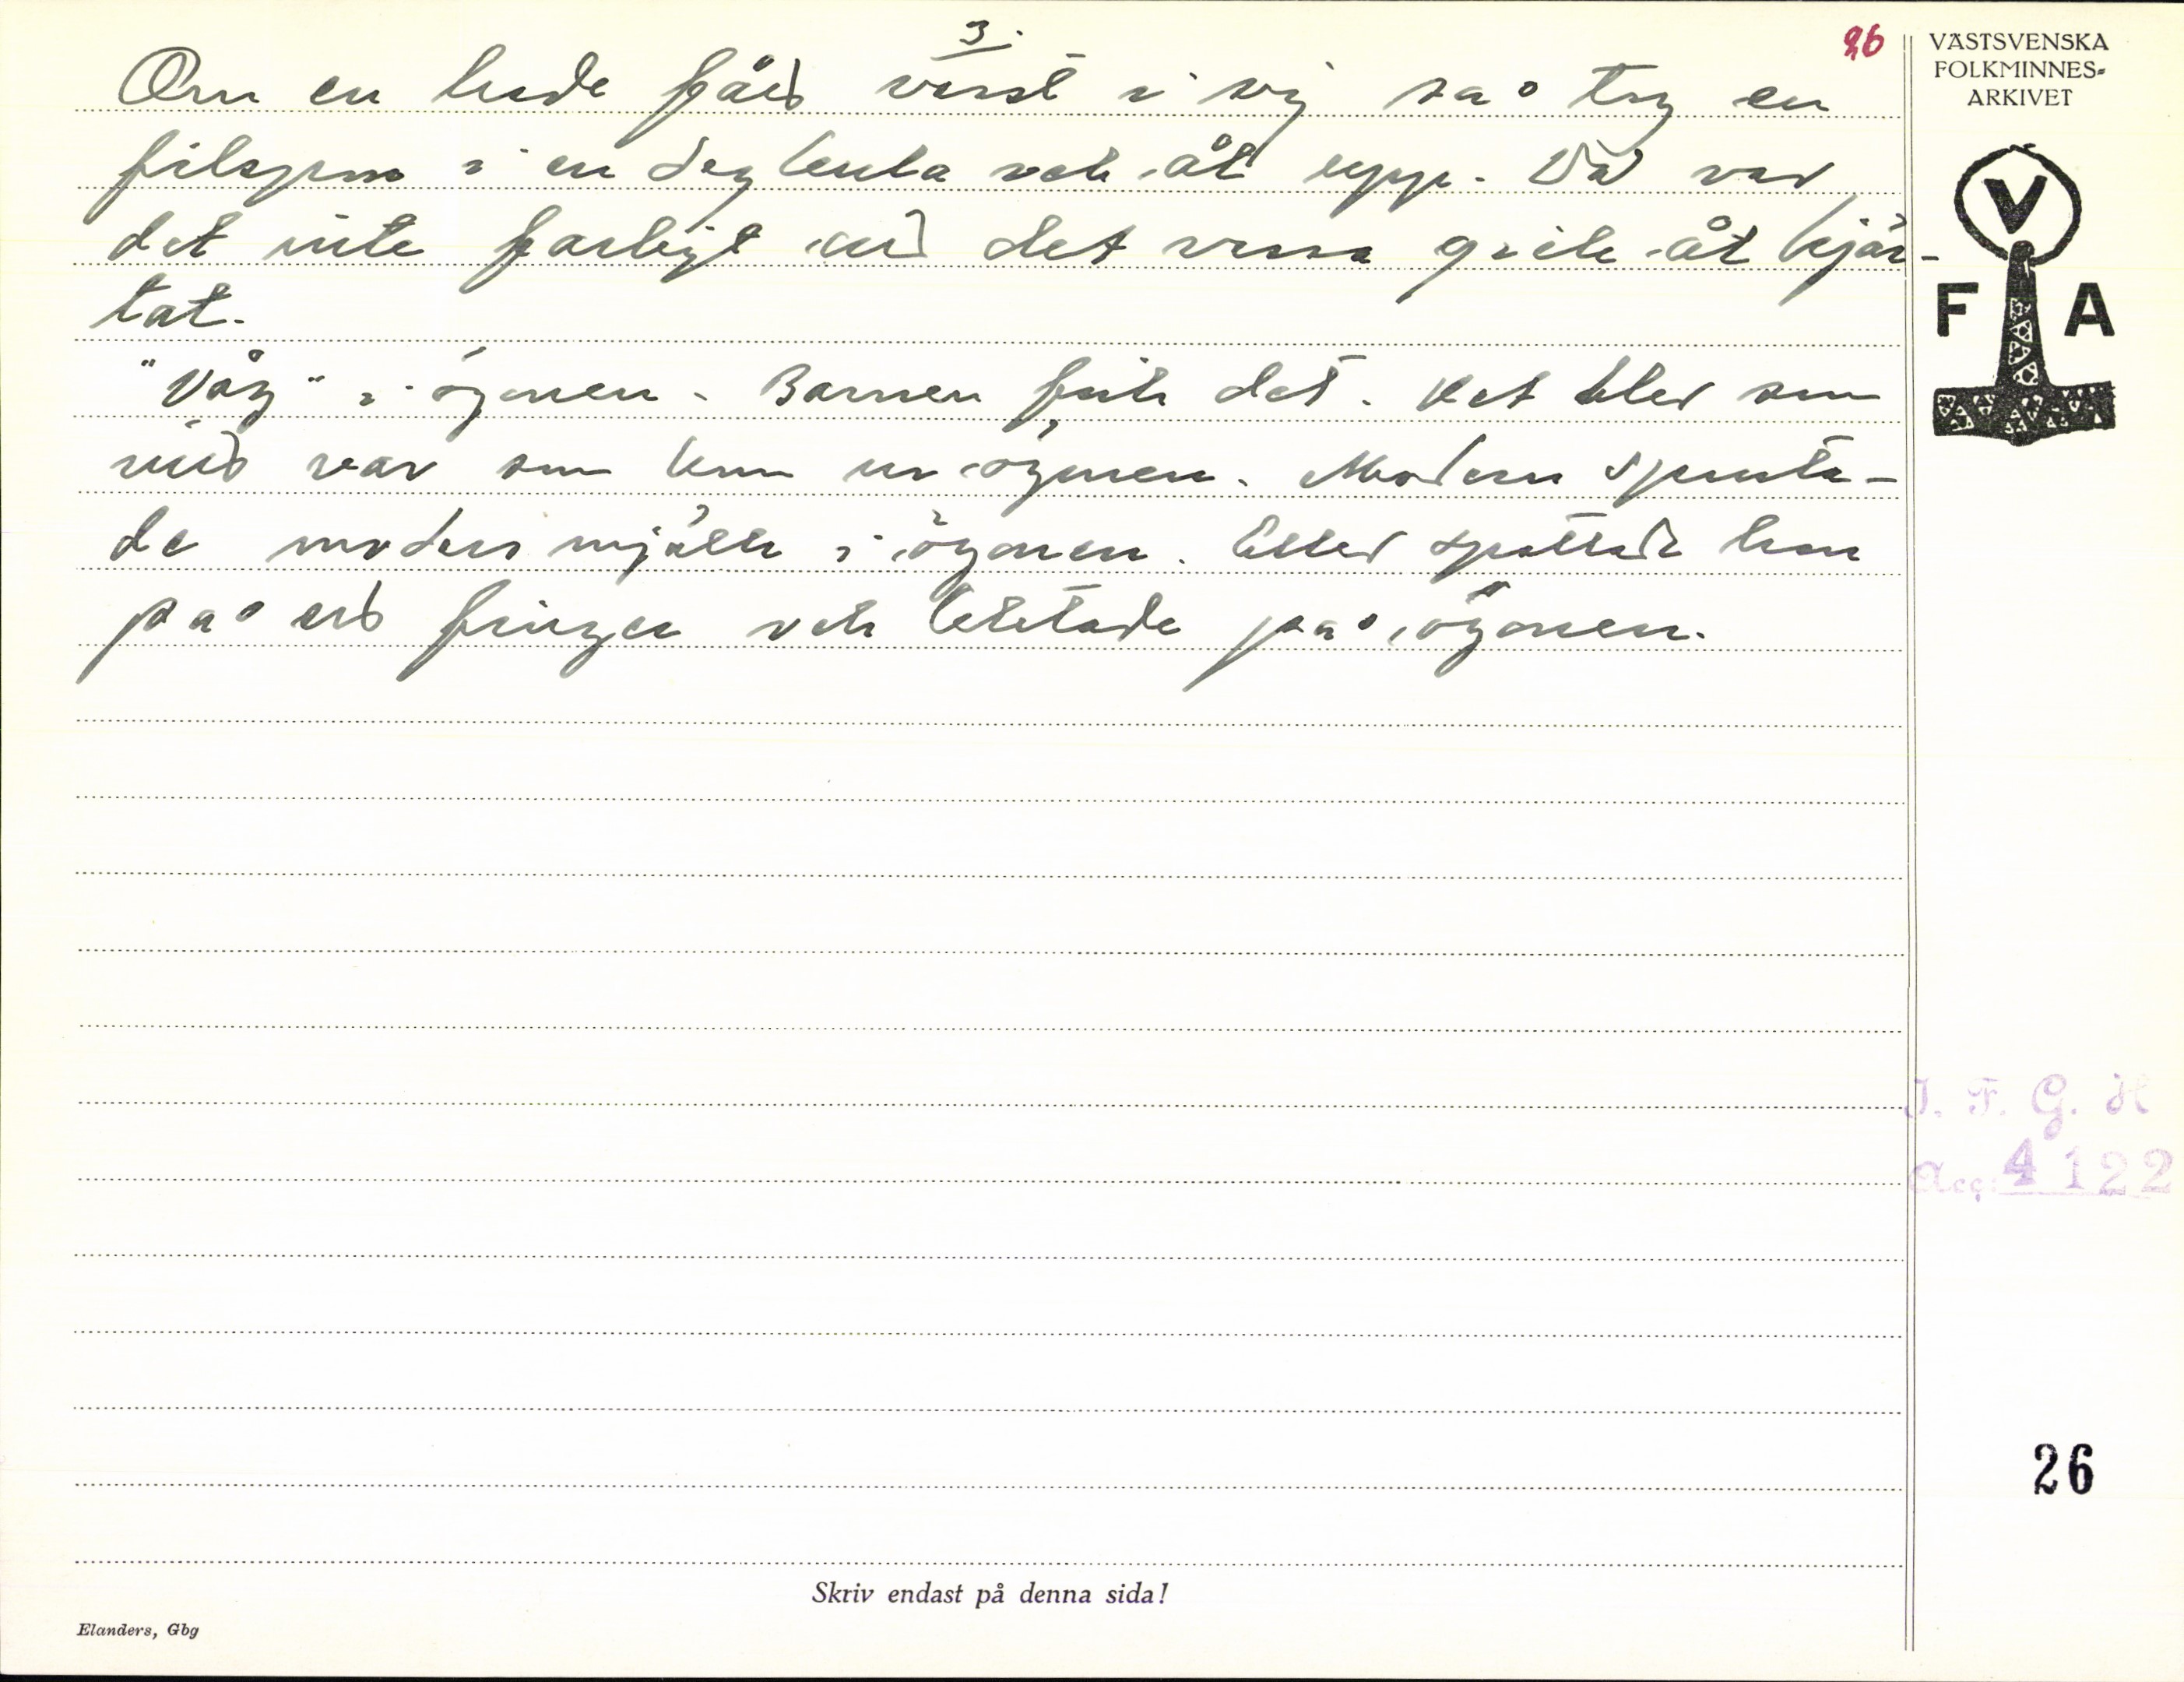 3.
26
Om en hade fått värst i sig så tog en
filspån i en degbulla och åt upp. Då var
det inte farligt att det rosa gick åt hjär-
tat.
"Våg" i ögonen. Barnen fick det. Det blev som
var som kom ur ögonen. Modern spruta-
de modersmjölk i ögonen. Eller spottade hon
på ett finger och ströp på ögonen.
VÄSTSVENSKA
FOLKMINNES-
ARKIVET
V
F A
I. F. G. H
Acc: 4122
26
Skriv endast på denna sida!
Elanders, Gbg